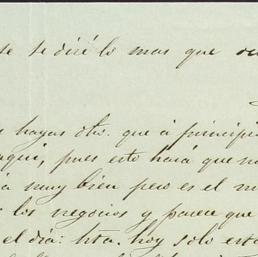 se te diré lo mas que
s hayas otro. que á principi
aqui, pues esto hará que no
a muy bien pero es el m
los negocios y parece que
el dia: Hta. hoy solo está